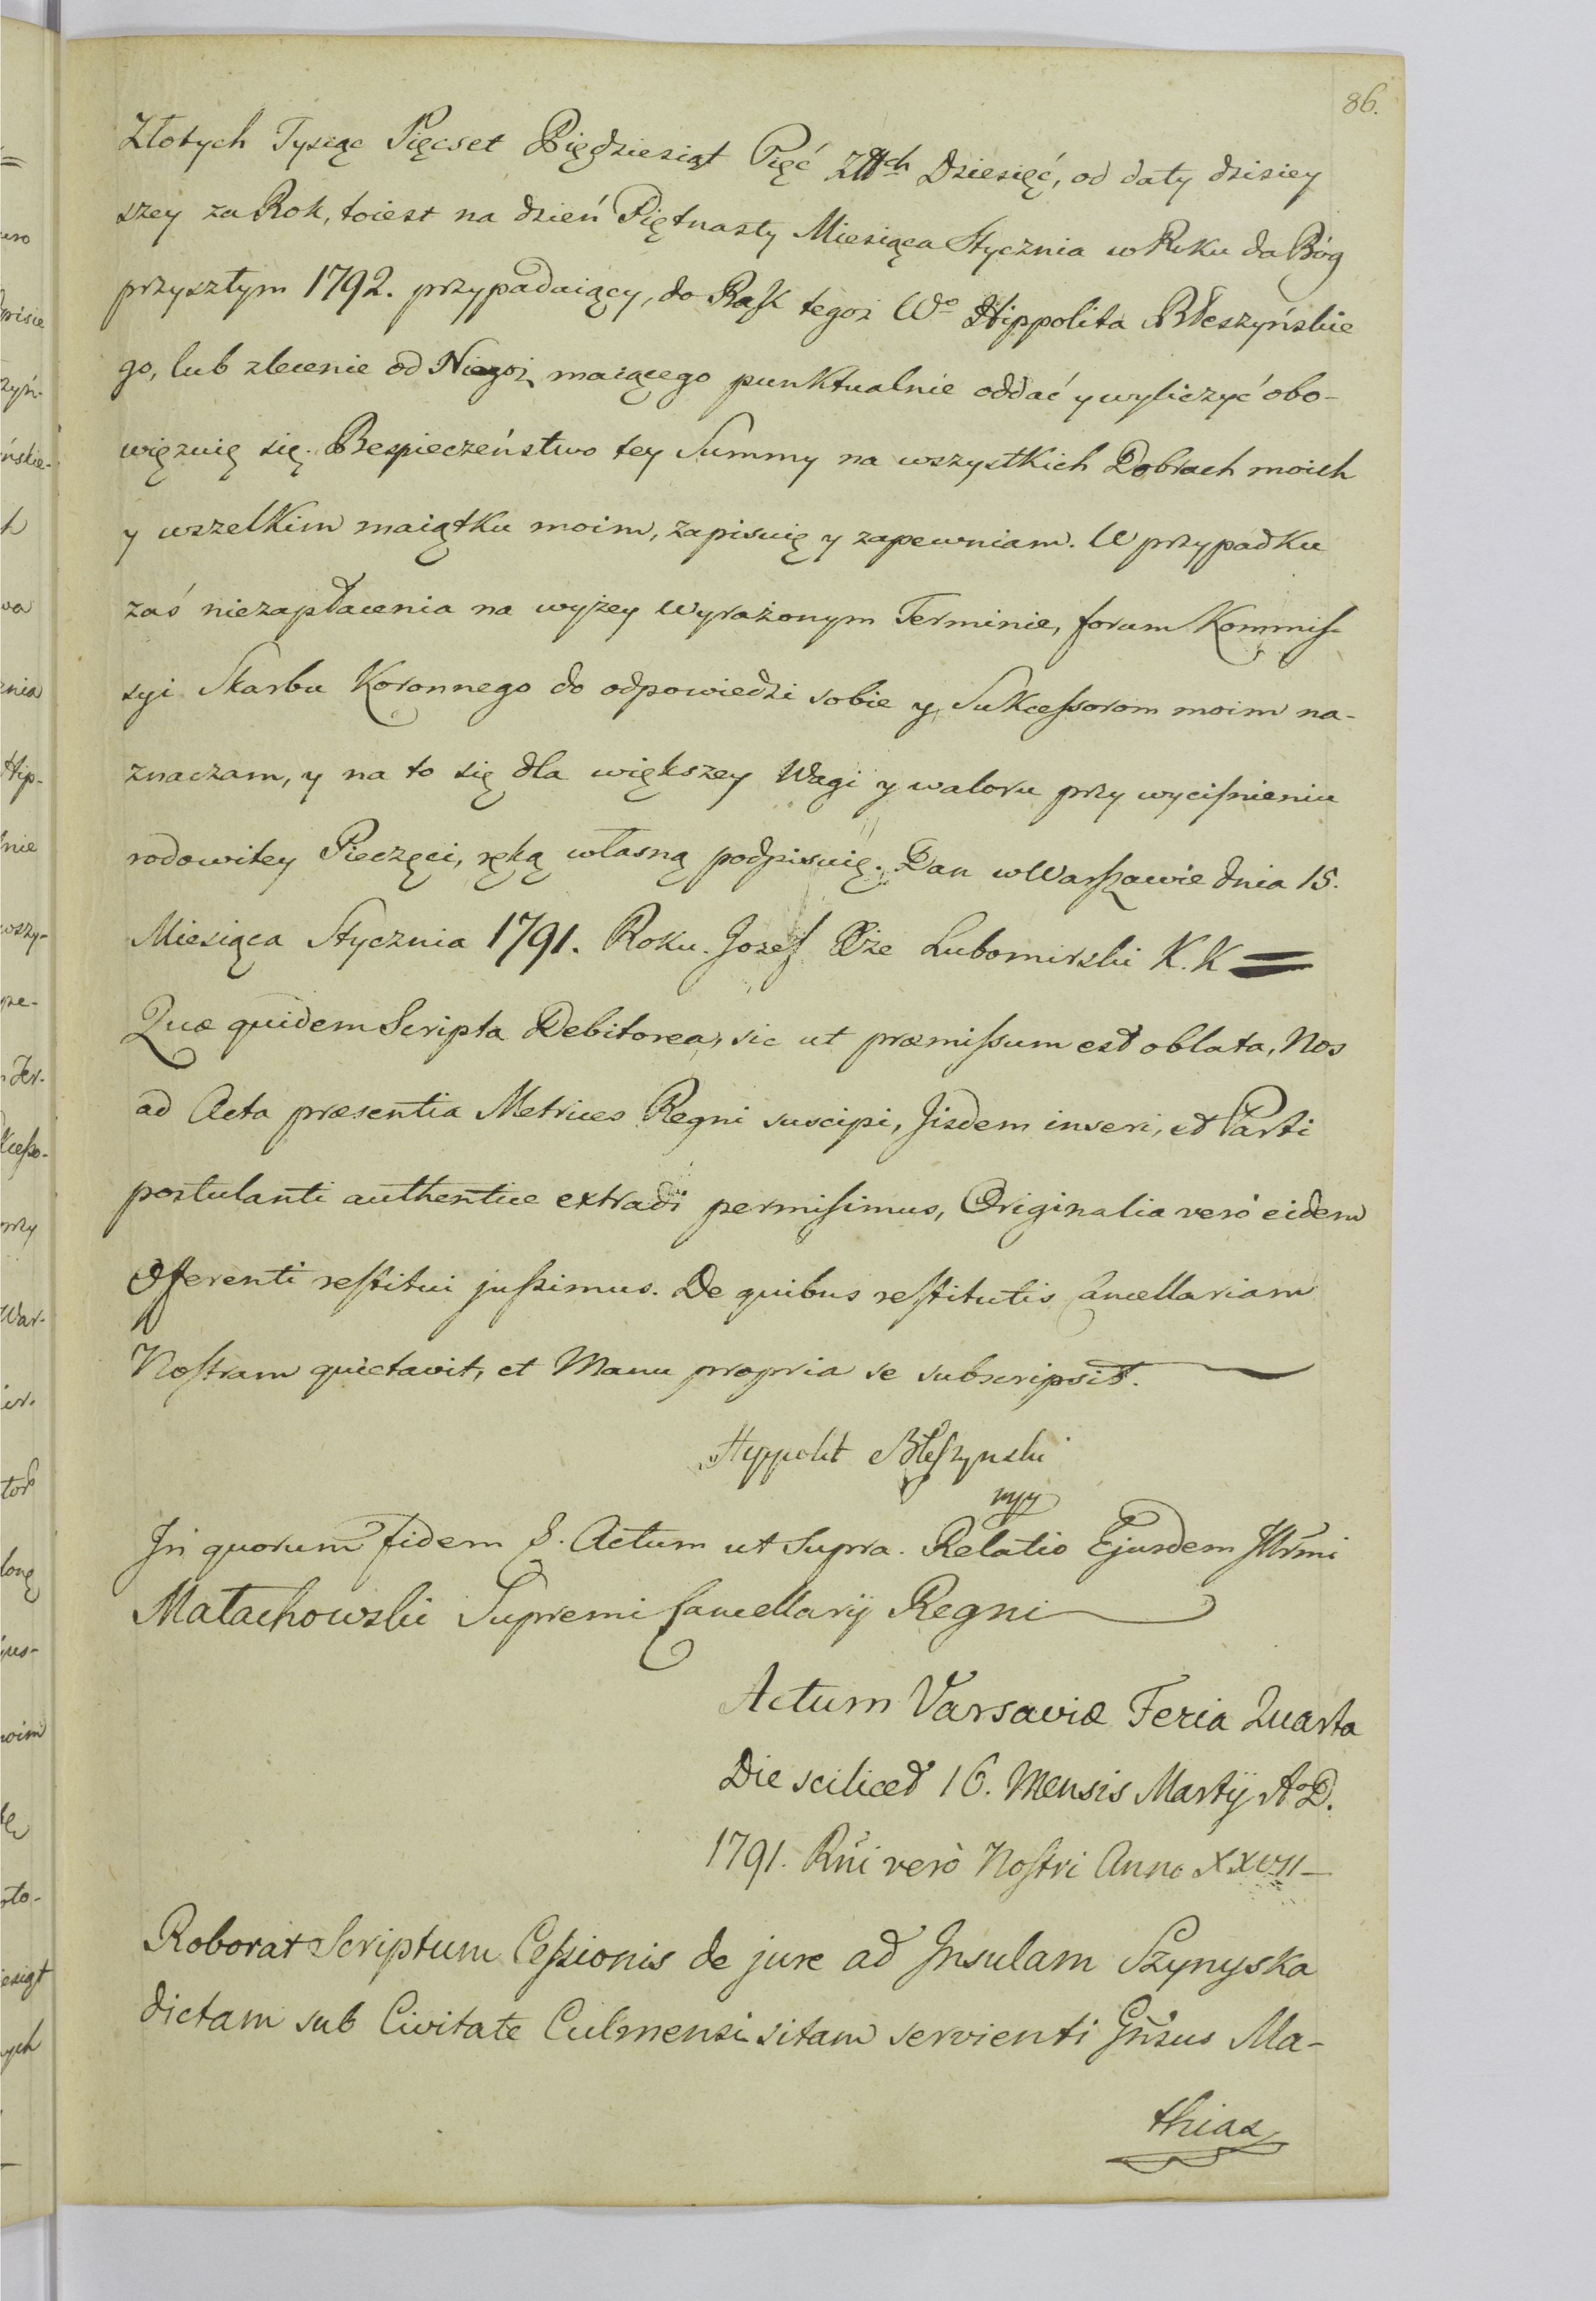 86.
Złotych Tysiąc Pięcset Pięgdziesiąt Pięć Złtch Dziesięć, od daty dzisiey
szey za Rok, toiest na dzień Piętnasty Miesiąca Stycznia w Roku da Bóg
przyszłym 1792. przypadaiący, do Rąk tegoż Wo Hippolita Błeszyńskie
go, lub zlecenie od Niegoż maiącego punktualnie oddać y wyliczyć obo-
więzuię się. Bespieczeństwo tey Summy na wszystkich Dobrach moich
y wszelkim maiątku moim, zapisuię y zapewniam. W przypadku
zaś niezapłacenia na wyżey wyrażonym Terminie, forum Kommis-
syi Skarbu Koronnego do odpowiedzi sobie y Sukcessorom moim na-
znaczam, y na to się dla większey Wagi y waloru przy wyciśnieniu
rodowitey Pieczęci, ręką własną podpisuię. Dan w Warszawie dnia 15.
Miesiąca Stycznia 1791. Roku. Jozef Xże Lubomirski K. K =
Quæ quidem Scripta Debitorea, sic ut præmissum est oblata, Nos
ad Acta præsentia Metrices Regni suscipi, Jisdem inseri, et Parti
postulanti authentice extradi permisimus, Originalia verò eidem
Offerenti restitui jussimus. De quibus restitutis Cancellariam
Nostram quietavit, et Manu propria se subscripsit.
Hyppolit Błeszynski
mpp
In quorum fidem &. Actum ut supra. Relatio Ejusdem Illrmi
Małachowski Supremi Cancellarij Regni
Actum Varsaviæ Feria Quarta
Die scilicet 16. Mensis Martij A. D.
1791. Rñi verò Nostri Anno XXVII
Roborat Scriptum Cessionis de jure ad Insulam Szynyska
dictam sub Civitate Culmensi sitam servienti Gñsus Ma-
thias